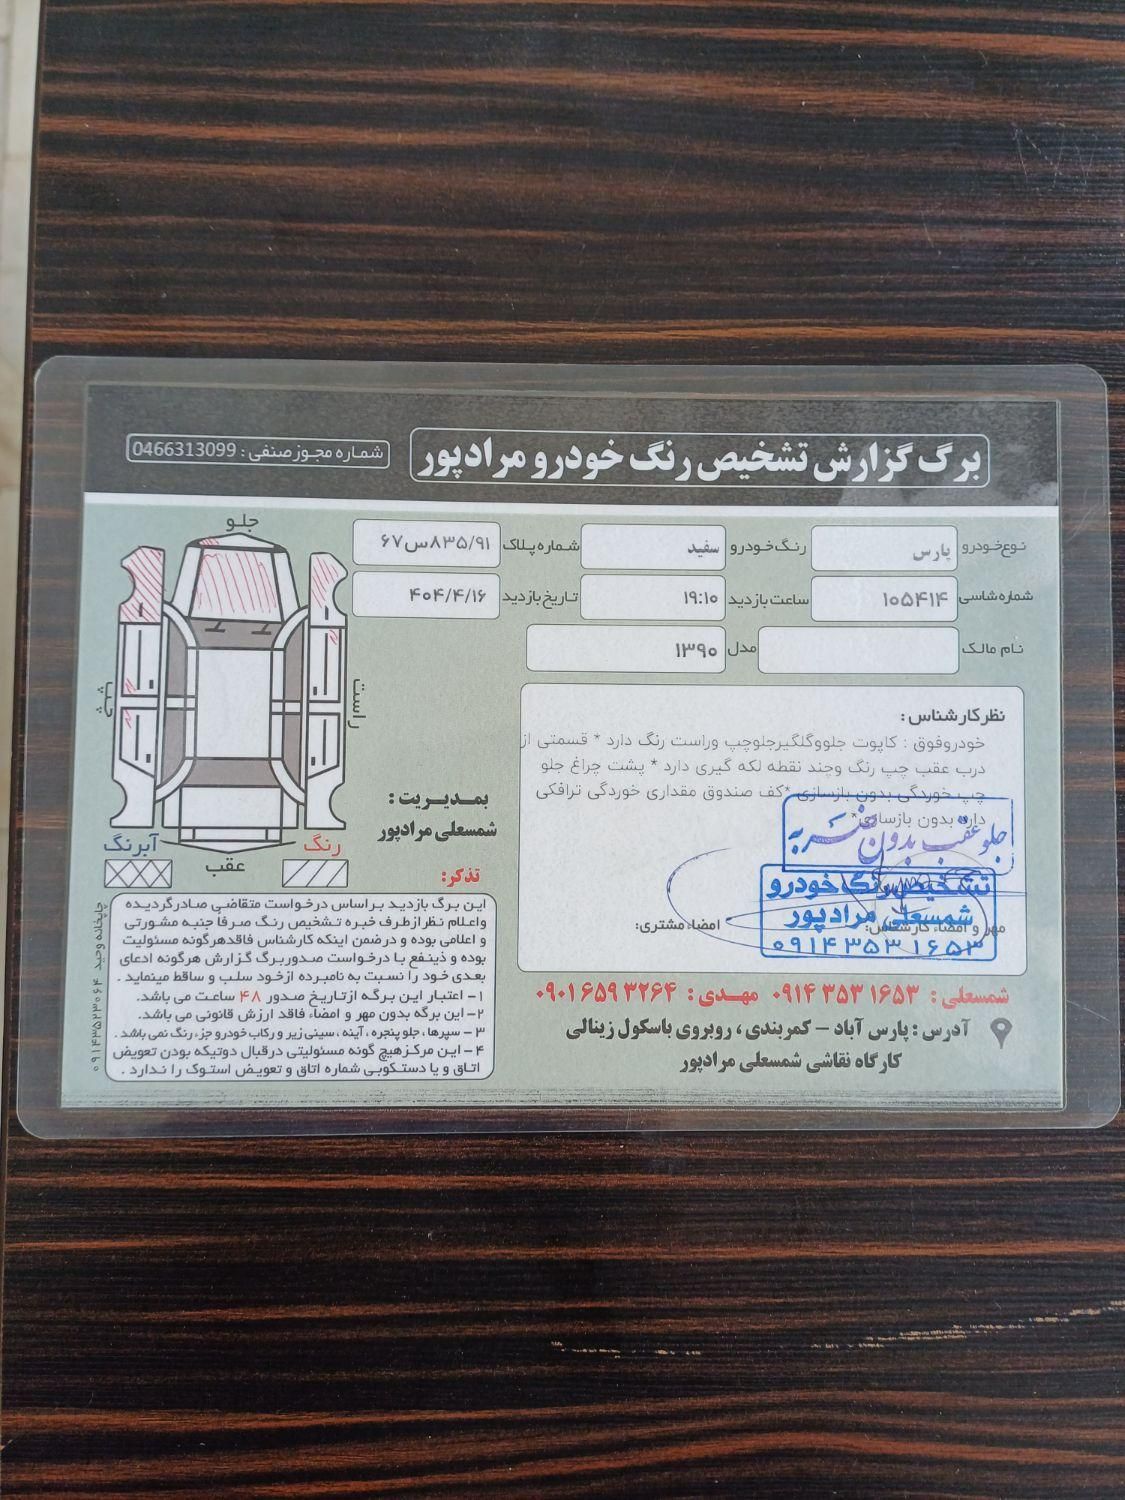 برگ گزارش تشخیص رنگ خودرو مرادپور
شماره مجوز صنفی : 0466313099
نوع خودرو پارس رنگ خودرو سفید شماره پلاک ۸۳۵/۹۱س۶۷
شماره شاسی ۱۰۵۴۱۴ ساعت بازدید ۱۹:۱۰ تاریخ بازدید ۴۰۴/۴/۱۶
نام مالک مدل ۱۳۹۰
نظر کارشناس :
خودروفوق : کاپوت جلووگلگیرجلوچپ وراست رنگ دارد * قسمتی از
درب عقب چپ رنگ وچند نقطه لکه گیری دارد * پشت چراغ جلو
چپ خوردگی بدون بازسازی *کف صندوق مقداری خوردگی ترافکی
دارد بدون بازسازی*
جلو عقب بدون ضربه
تشخیص رنگ خودرو
شمسعلی مرادپور
۰۹۱۴ ۳۵۳ ۱۶۵۳
مهر و امضاء کارشناس:
امضاء مشتری:
شمسعلی : ۰۹۱۴ ۳۵۳ ۱۶۵۳ مهدی : ۰۹۰۱ ۶۵۹ ۳۲۶۴
آدرس : پارس آباد – کمربندی ، روبروی باسکول زینالی
کارگاه نقاشی شمسعلی مرادپور
جلو
چپ
راست
عقب
آبرنگ
رنگ
بمـدیـریت :
شمسعلی مرادپور
تذکر:
این برگ بازدید براساس درخواست متقاضی صادرگردیده
واعلام نظر ازطرف خبره تشخیص رنگ صرفاً جنبه مشورتی
و اعلامی بوده و درضمن اینکه کارشناس فاقدهرگونه مسئولیت
بوده و ذینفع با درخواست صدوربرگ گزارش هرگونه ادعای
بعدی خود را نسبت به نامبرده ازخود سلب و ساقط مینماید .
۱- اعتبار این برگه ازتاریخ صدور ۴۸ ساعت می باشد.
۲- این برگه بدون مهر و امضاء فاقد ارزش قانونی می باشد.
۳ - سپرها ، جلو پنجره ، آینه ، سینی زیر و رکاب خودرو جزء رنگ نمی باشد .
۴- این مرکزهیچ گونه مسئولیتی درقبال دوتیکه بودن تعویض
اتاق و یا دستکوبی شماره اتاق و تعویض استوک را ندارد .
چاپخانه وحید ۰۹۱۴۳۵۲۳۰۶۴